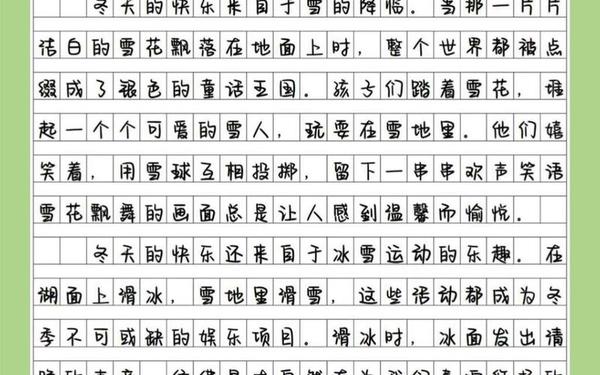 冬天的快乐来自于雪的降临。当那一片片
洁白的雪花飘落在地面上时，整个世界都被点
缀成了银色的童话王国。孩子们踏着雪花，堆
起一个个可爱的雪人，玩耍在雪地里。他们嬉
笑着，用雪球互相投掷，留下一串串欢声笑语
雪花飘舞的画面总是让人感到温馨而愉悦。
冬天的快乐还来自于冰雪运动的乐趣。在
湖面上滑冰，雪地里滑雪，这些活动都成为冬
季不可或缺的娱乐项目。滑冰时，冰面发出清